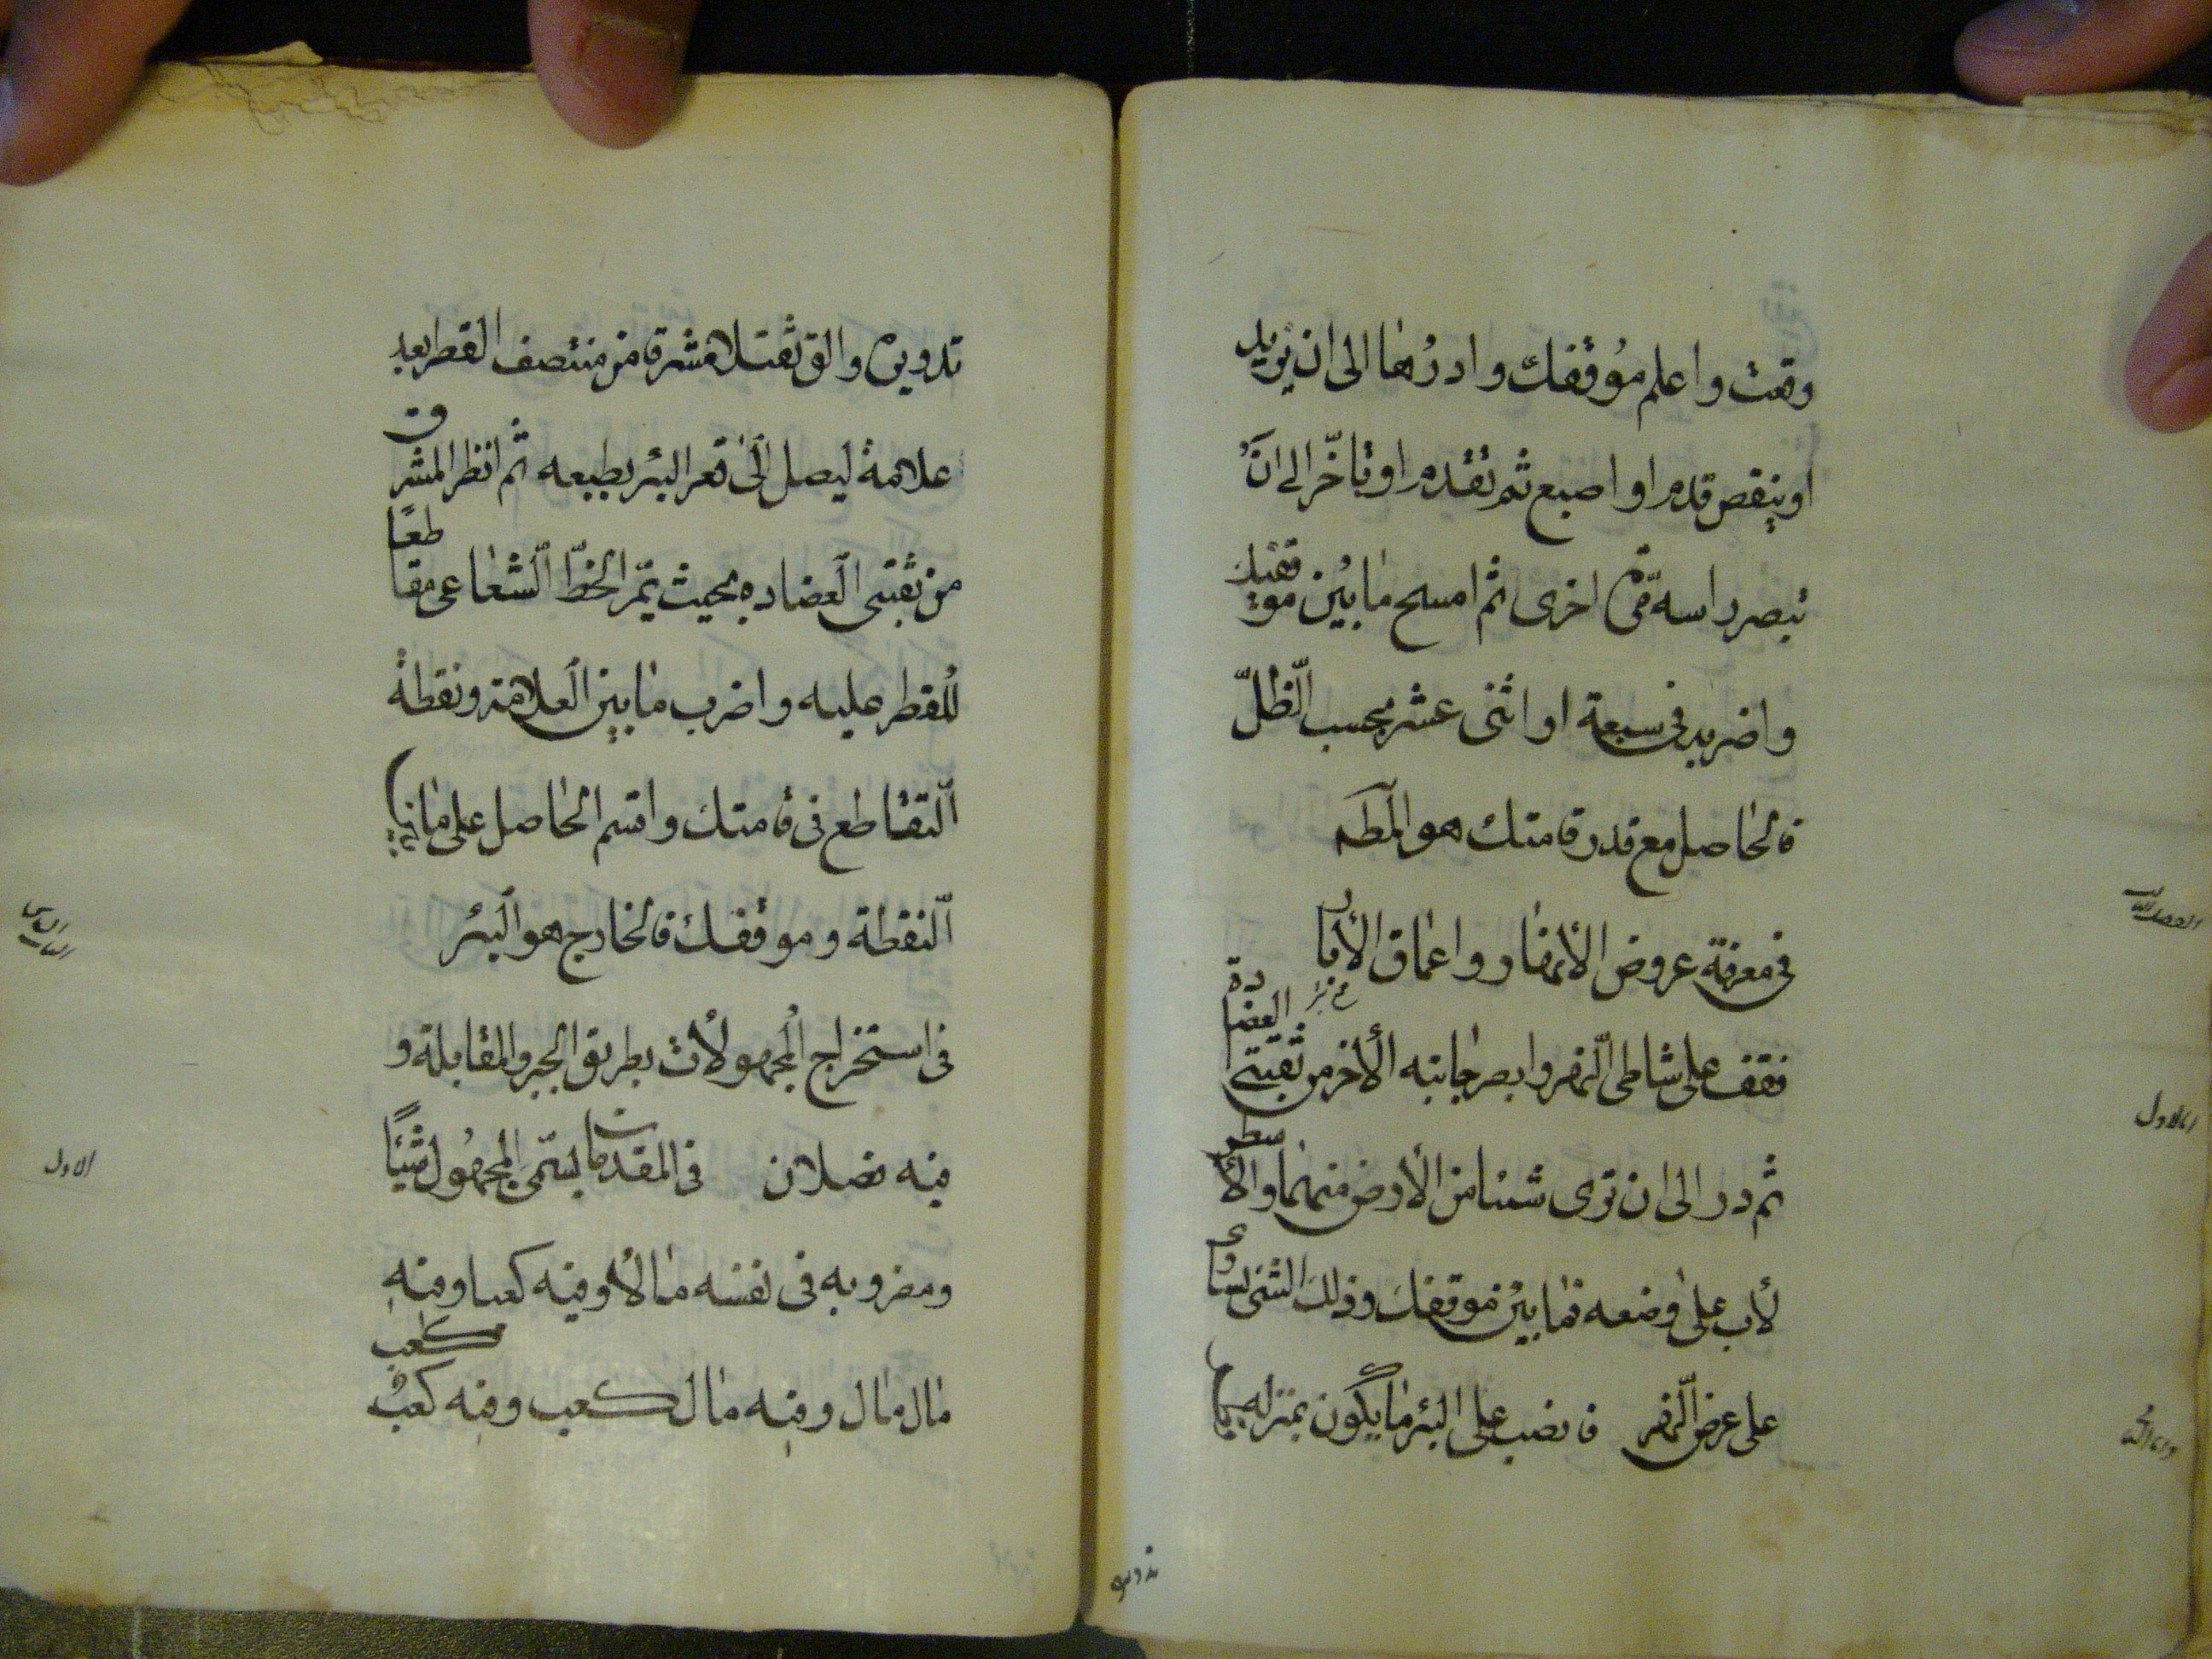 وقعت واعلم موقفك وادرها الى ان يزيد
او ينقص قدم او اصبع ثم تقدم او تاخّر الى ان
تبصر راسه مرّة اخرى ثم امسح ما بين موقفيك
واضربه فى سبعة او اثنى عشر بحسب الظّلّ
فالحاصل مع قدر قامتك هو المط
فى معرفة عروض الأنهار واعماق الأبار
فقف على شاطى النّهر وابصر جانبه الأخر من ثقبتى العضادة
ثم در الى ان ترى شيئا من الأرض منهما والأسطر
لأب على وضعه فما بين موقفك وذلك الشئ يساوى
على عرض النّهر فانصب على البئر ما يكون بمنزلة
تدوير
تدويره والق ثقيلا مشرقا من منتصف القطر بعد
علامة ليصل الى قعر البئر بطبعه ثم انظر المشرق
من ثقبتى العضاده بحيث يمرّ الخطّ الشعاعى مقاطعًا
للقطر عليه واضرب ما بين العلامة ونقطة
التقاطع فى قامتك واقسم الحاصل على ما بين
النّقطة وموقفك فالخارج هو البئر
فى استخراج المجهولات بطريق الجبر والمقابلة و
فيه فصلان فى المقدمات يسمّى المجهول شيئًا
ومضروبه فى نفسه مالا وفيه كعبا وفيه
مال مال وفيه مال كعب وفيه كعب كعب
الاول